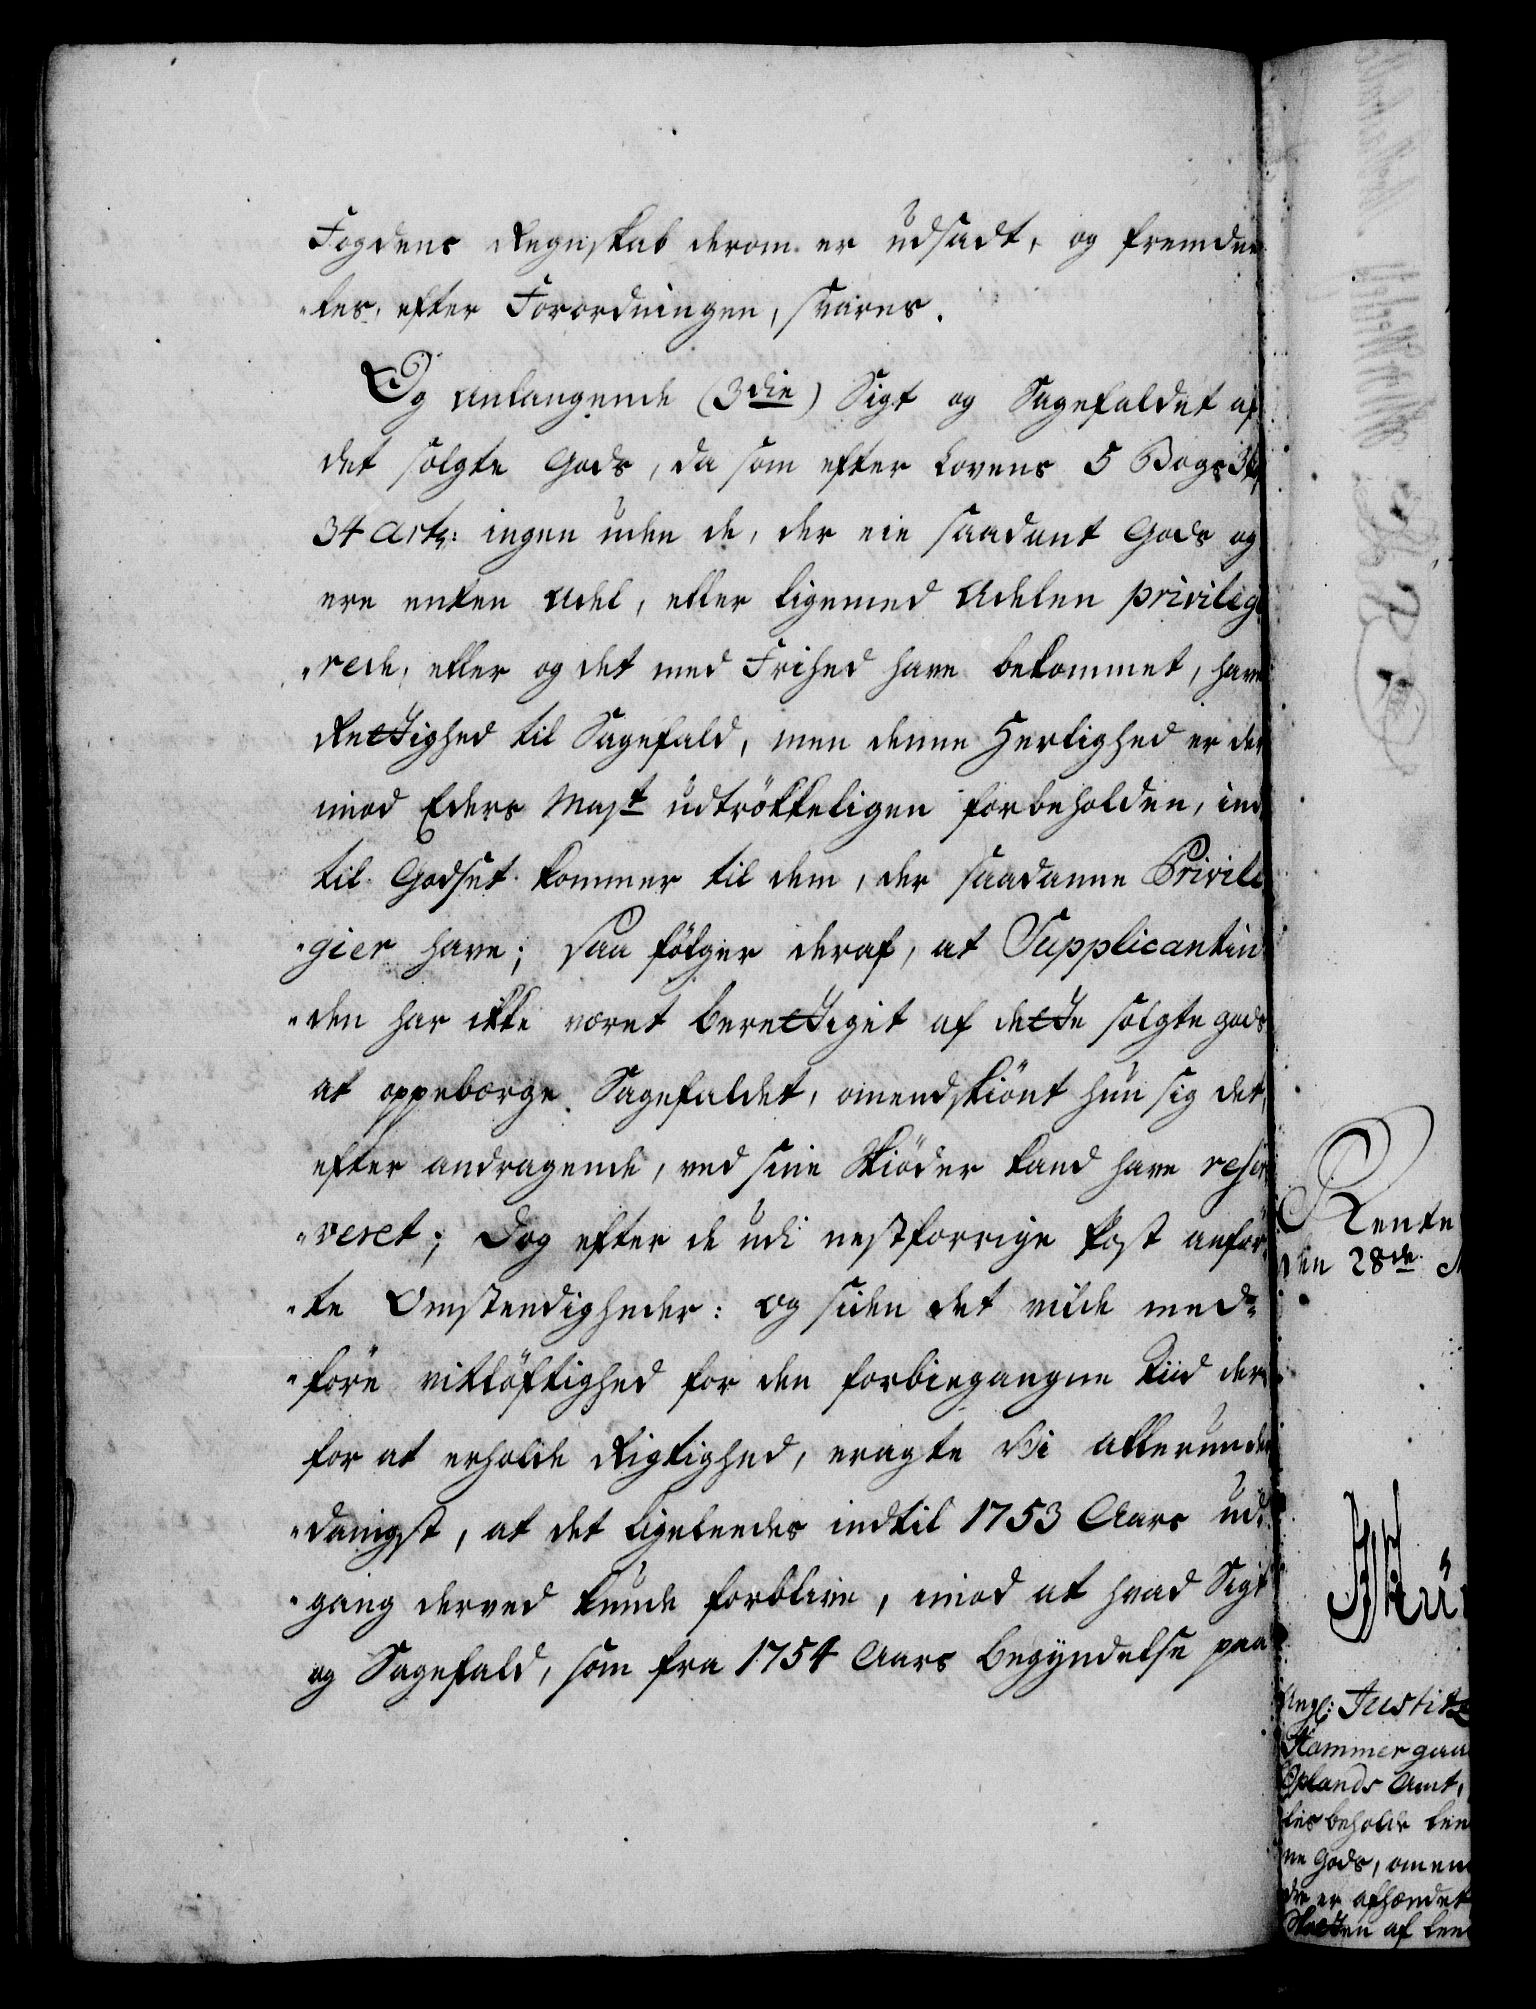 Fogdens Regnskab derom er udsadt, og fremdee
les, efter Forordningen, svares.
Og anlangende (3die) Sigt og Sagefaldet af
det solgte Gods, da som efter Lovens 5 Bogs 3
34 Art: ingen uden de, der eie saadant Gods og
ere enten Adel, eller ligemed Adelen privilegi
rede, eller og det med Frihed have bekommet, have
Rettighed til Sagefald, men denne Herlighed er der
imod Eders Majt udtrökkeligen forbeholden, ind
til Godset kommer til dem, der saadanne Privile
gier have; saa fölger deraf, at Supplicantin
den har ikke været berettiget af dette solgte gods
at oppeborge Sagefaldet, omendskiönt hun sig det,
efter andragende, ved sine Skiöder kand have reser
veret; Dog efter de udi nestforrige Post anför
te Omstendigheder: og siden det vilde med
före vitlöftighed for den forbiegangne Tiid der
for at erholde Rigtighed, eragte Vi allerunder
danigst, at det ligeleedes indtil 1753 Aars ud
gang derved kunde forblive, imod at hvad Sigt
og Sagefald, som fra 1754 Aars Begyndelse paa
Rente
den 28de
Angl: Justitz
Kammergaa
Oplands Amt,
ne Gods, omen
er afhændet
af